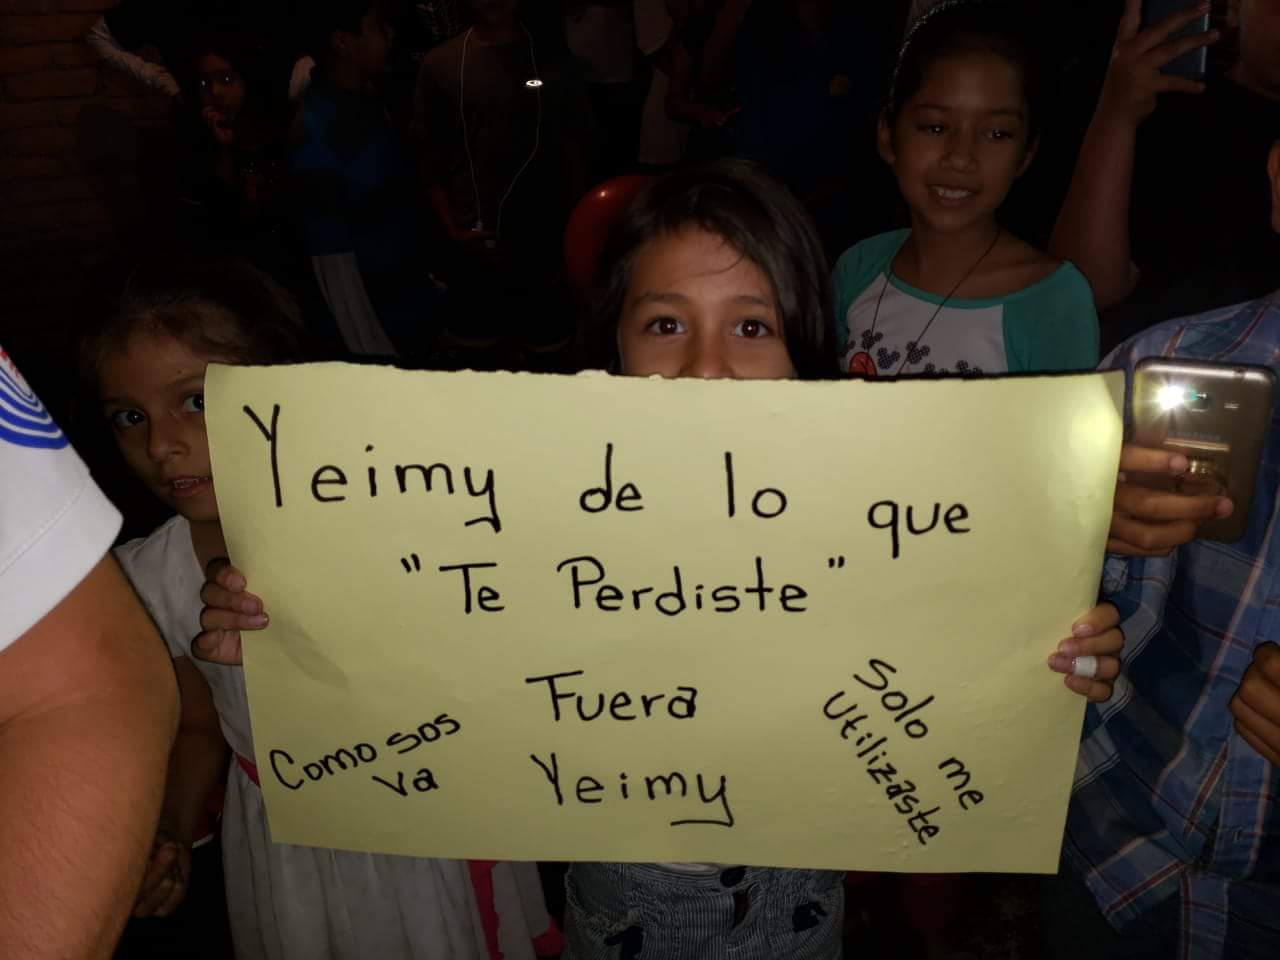 Yeimy de lo que
"Te Perdiste"
Fuera
Yeimy
Como sos
va
Solo me
Utilizaste